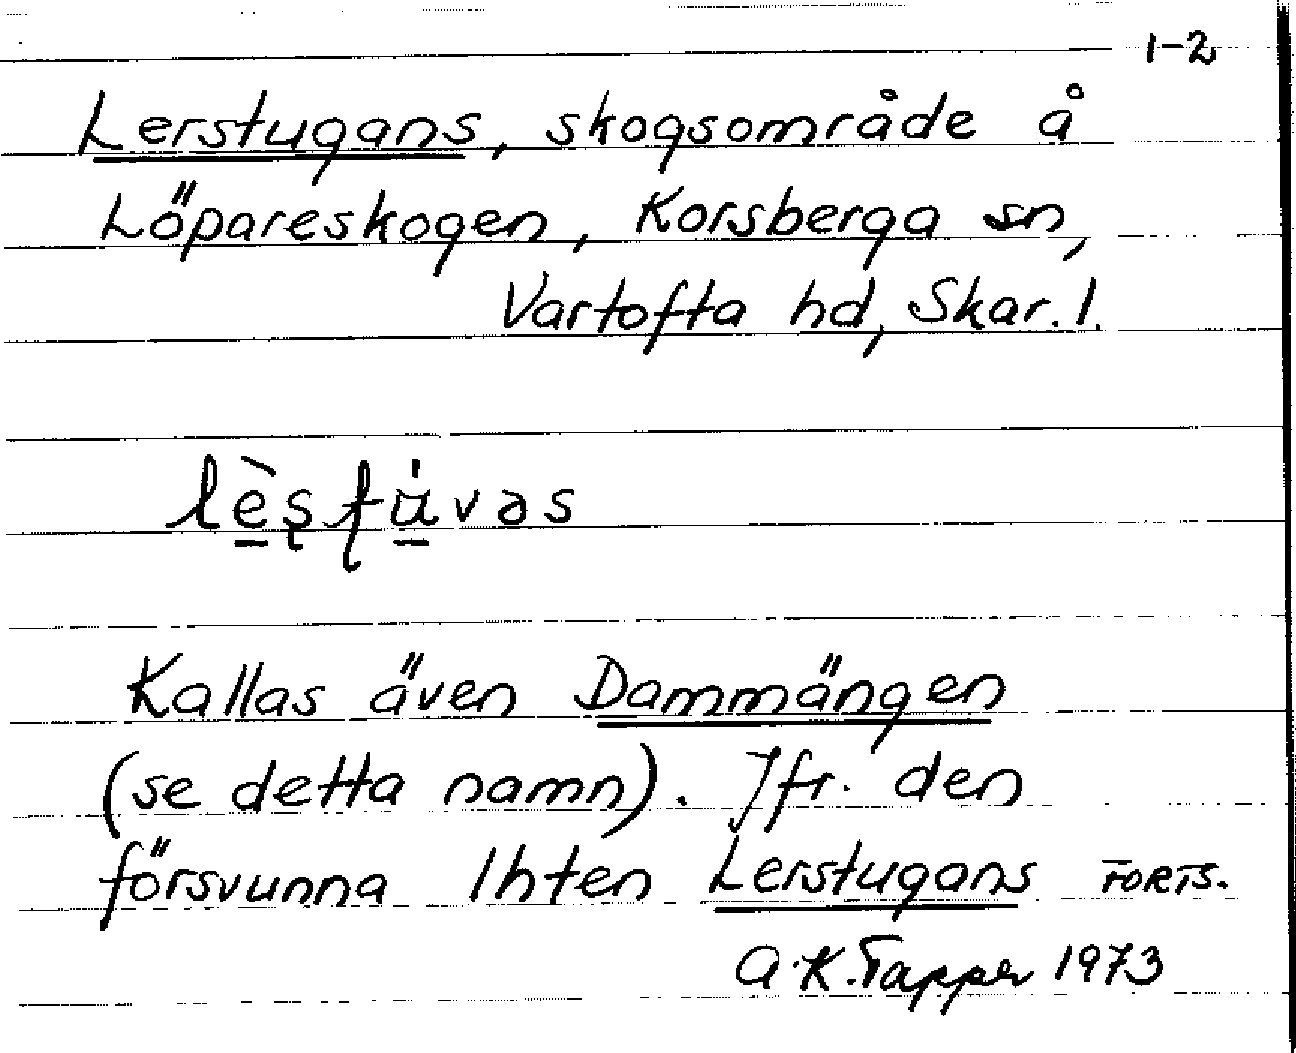 1-2
Lerstugans, skogsområde å
Löpareskogen, Korsberga sn,
Vartofta hd, Skar. l.
Kallas även Dammängen
(se detta namn). Jfr. den
försvunna lhten Lerstugans FORTS.
A.K. Tapper 1973